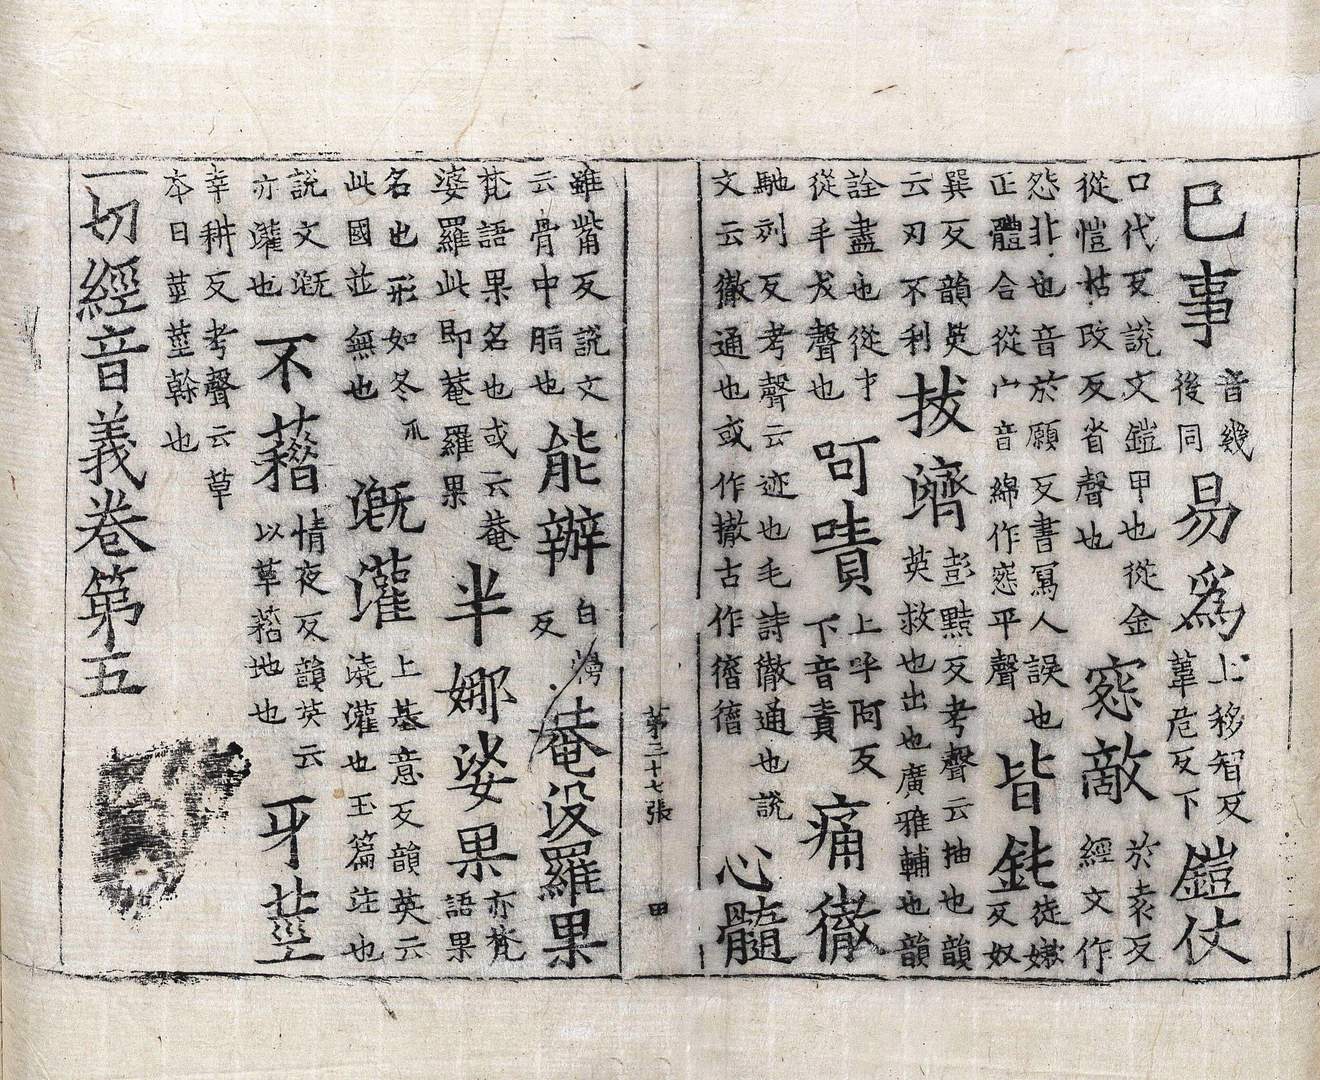 巳事音幾後同易爲上移智反葦危反下鎧仗
口代反說文鎧甲也從金從愷枯改反省聲也惌敵於袁反經文作
怨非也音於願反書寫人誤也正體合從宀音綿作惌平聲皆鈍徒嫩反奴
巽反韻英云刃不利拔濟彭黠反考聲云抽也韻英救也出也廣雅輔也韻
詮盡也從扌從手犮聲也呵嘖上呼阿反下音責痛徹
馳列反考聲云迹也毛詩徹通也說文云徹通也或作撤古作心髓
第三十七張 甲
雖觜反說文云骨中脂也能辦白反菴没羅果
梵語果名也或云菴婆羅此即菴羅果半娜娑果亦梵語果
名也形如冬瓜此國並無也溉灌上基意反韻英云澆灌也玉篇注也
說文溉亦灌也不藉情夜反韻英云以草藉地也牙莖
幸耕反考聲云草本曰莖莖幹也
一切經音義卷第五